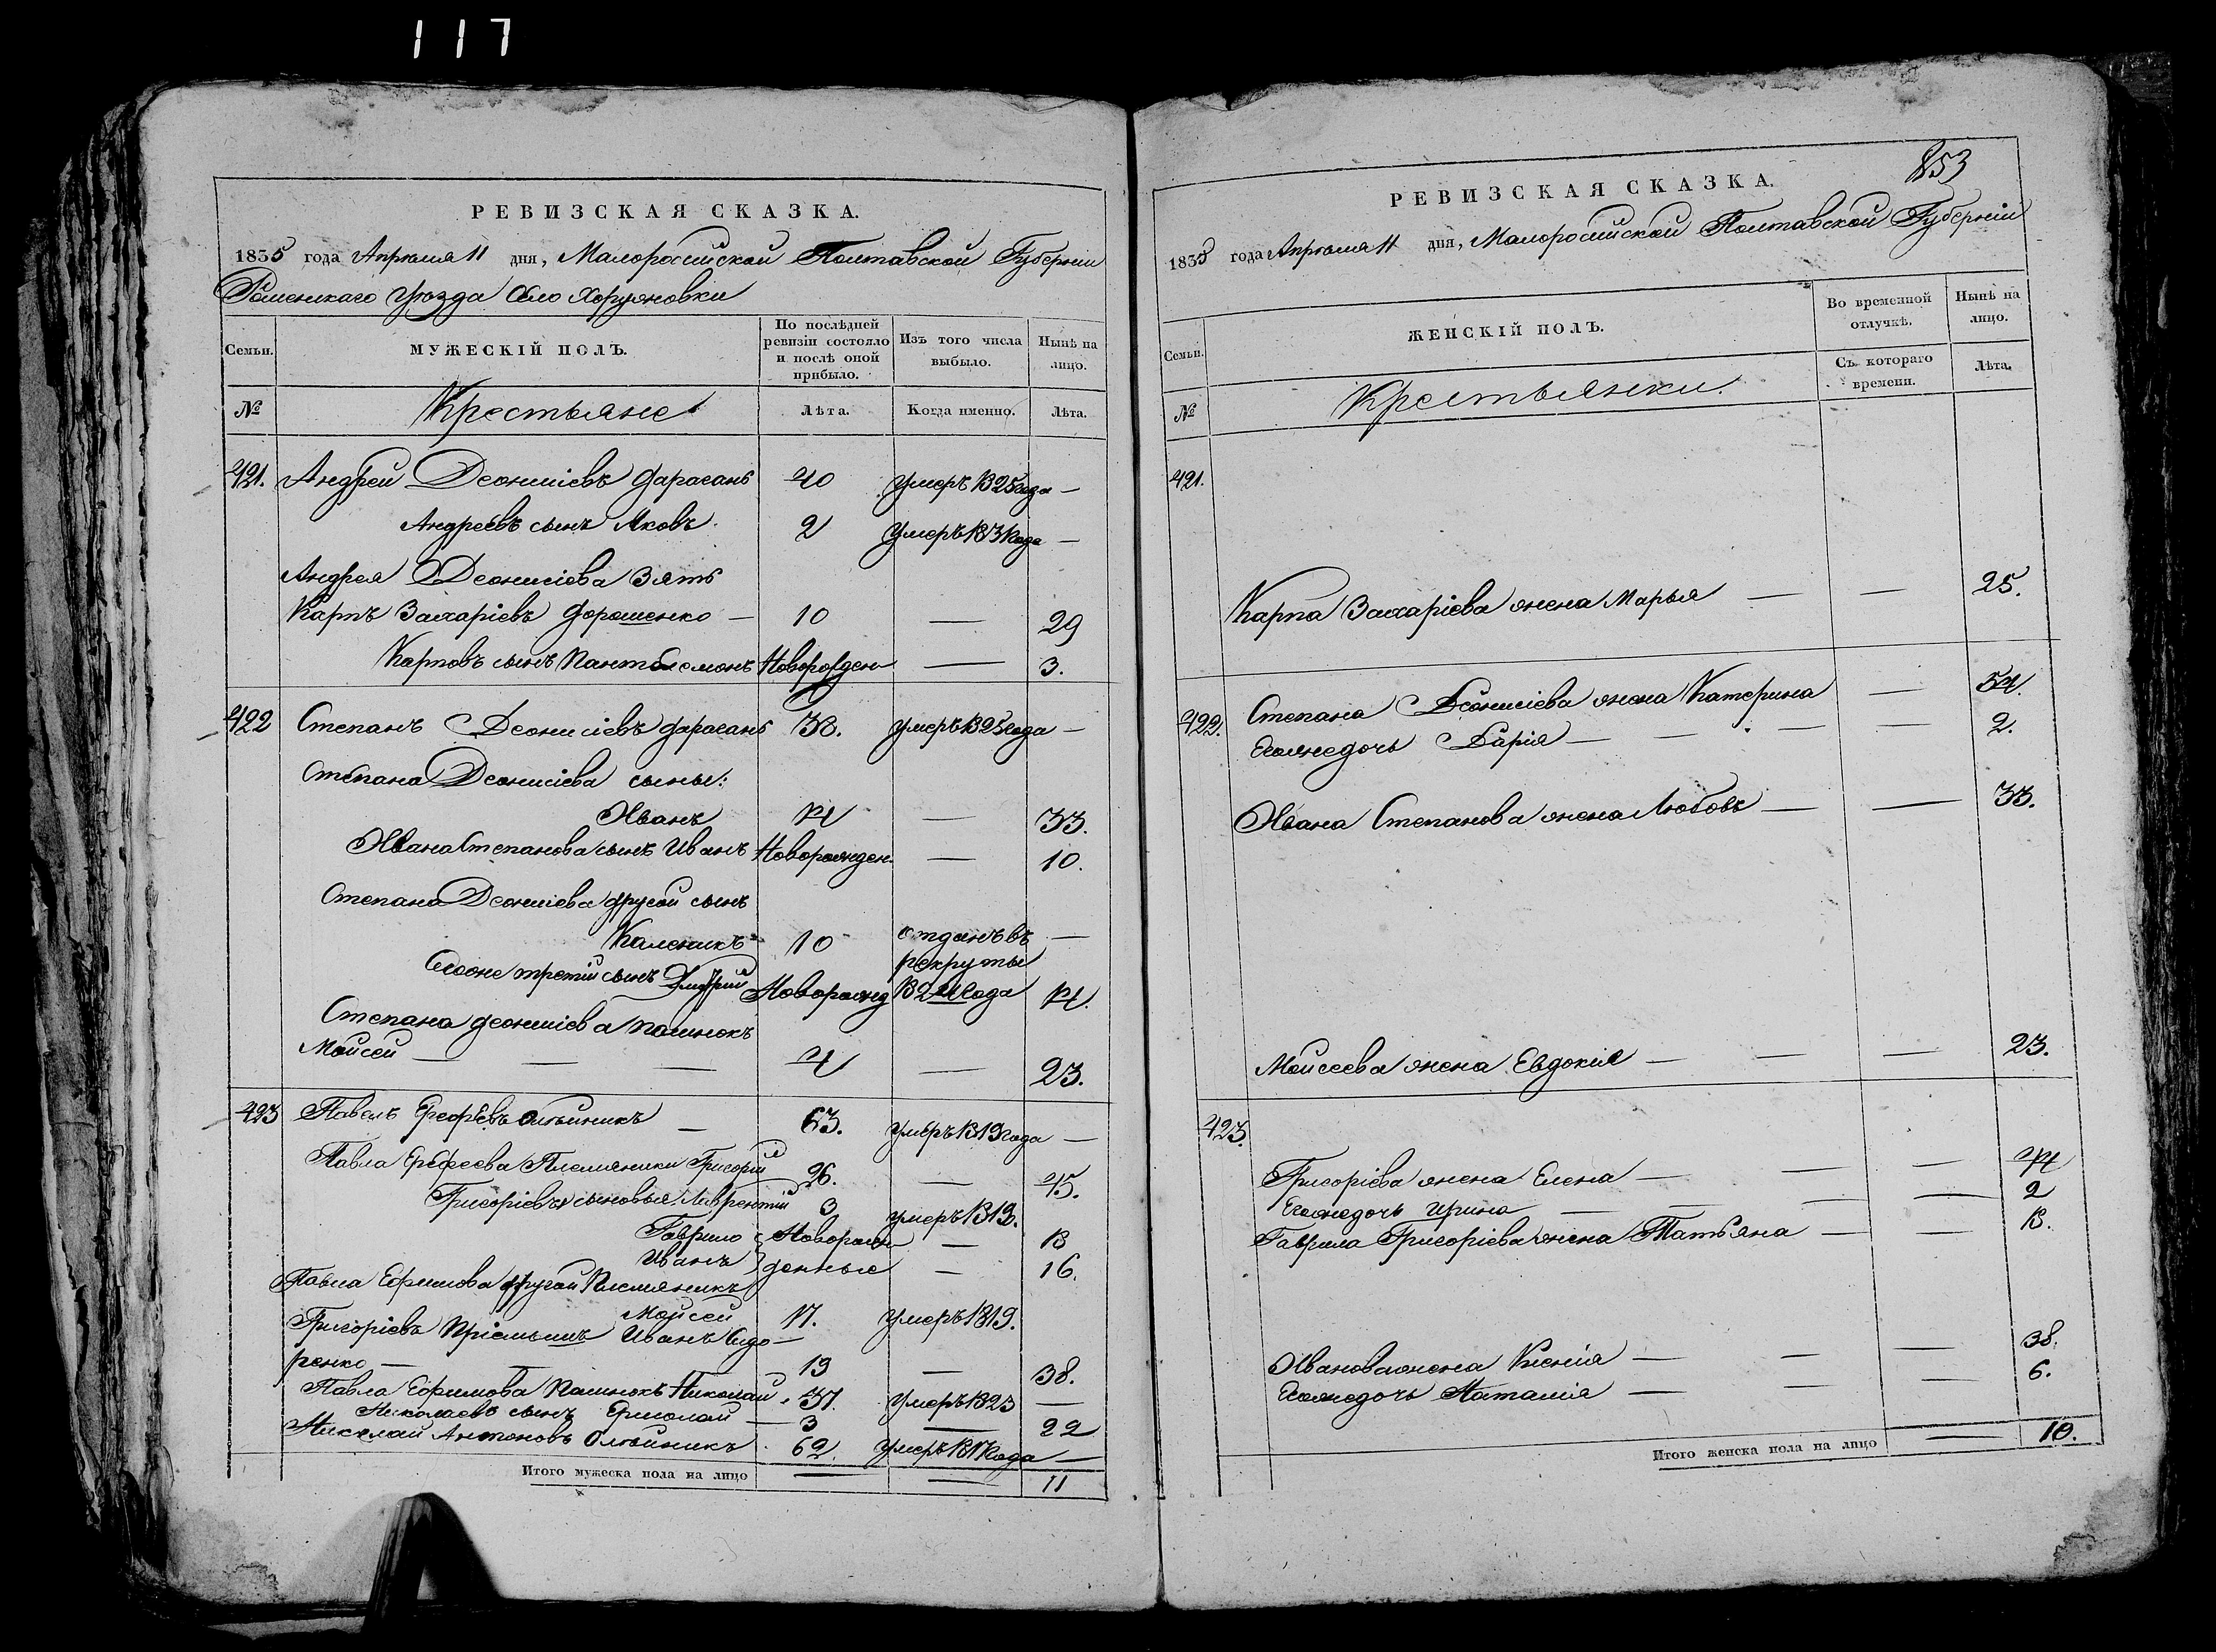 117
РЕВИЗСКАЯ СКАЗКА.
1835 года Апреля 11 дня, Малоросийской Полтавской Губернии
Роменскаго Уезда Село Хоружовки
Семьи.
МУЖЕСКІЙ ПОЛЪ.
По послѣдней ревизіи состояло и послѣ оной прибыло.
Изъ того числа выбыло.
Нынѣ на лицо.
№
Крестьяне
Лѣта.
Когда именно.
Лѣта.
421. Андрей Деонисіевъ Фарасанъ 40 умеръ 1825 года —
Андреевъ сынъ Яковъ. 2 умеръ 1831 года —
Андрея Деонисіева Зять
Карпъ Захаріевъ Дорошенко — 10 — 29
Карповъ сынъ Пантелемонъ Новорожден — 3.
422 Степанъ Деонисіевъ Фарасанъ 38. умеръ 1825 года —
Степана Деонисіева сыны:
Иванъ 14 — 33.
Ивана Степанова сынъ Иванъ Новорожден. — 10.
Степана Деонисіева другой сынъ
Каленикъ 10 отданъ въ —
рекруты
Егоже третій сынъ Дмитрій Новорожд 1824 года 14.
Степана Деонисіева пасынокъ
Мойсей — — — 4 — 23.
423 Павелъ Ерофѣевъ Олѣйникъ — 63. умеръ 1819 года —
Павла Ерофеева Племяники Григорій 26. — 45.
Григоріевы сыновья Лаврентій 3 умеръ 1819.
Гаврило Новорож — 18
Иванъ денные — 16.
Павла Ефимова другой Племяникъ
Мойсей 17. умеръ 1819.
Григоріевъ Пріемышъ Иванъ Сидо—
ренко — — — 19 — 38.
Павла Ефимова Пасынокъ Николай 37. умеръ 1823 —
Николаевъ сынъ Ермолай — 3 — 22
Николай Антоновъ Олѣйникъ 62. умеръ 1817 года —
Итого мужеска пола на лицо — — 11
853
РЕВИЗСКАЯ СКАЗКА.
1835 года Апреля 11 дня, Малоросийской Полтавской Губерніи
Семьи.
ЖЕНСКІЙ ПОЛЪ.
Во временной отлучкѣ.
Нынѣ на лицо.
№
Крестьянки.
Съ котораго времени.
Лѣта.
421.
Карпа Захаріева жена Марья — — 25.
422. Степана Деонисіева жена Катерина — 54.
Егоже дочь Дарія — — — — 2.
Ивана Степанова жена Любовь — — 33.
Мойсеева жена Евдокія — — — 23.
423.
Григоріева жена Елена — — — 44
Егоже дочь Ирина — — — 2
Гаврила Григоріева жена Татьяна — — 18.
Иванова жена Ксенія — — — 38.
Егоже дочь Наталія — — — 6.
Итого женска пола на лицо — 10.